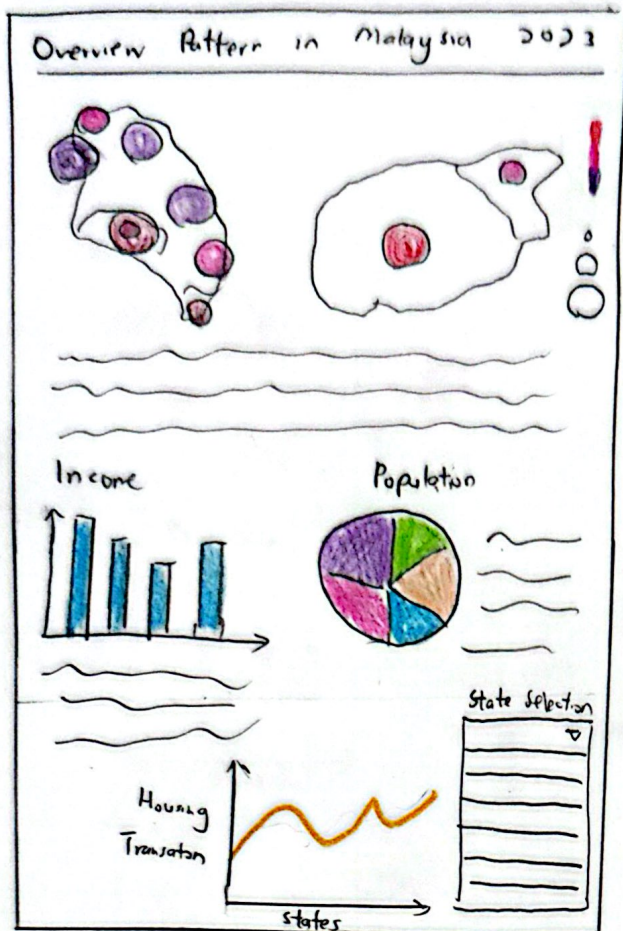 Overview Pattern in Malaysia 2023
Income
Population
State Selection
Housing
Transaton
states